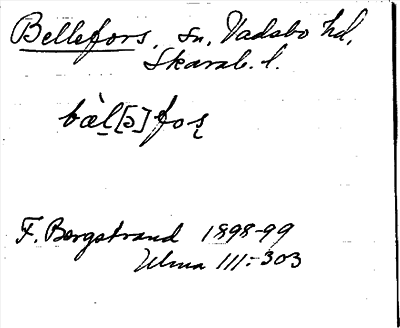 Bellefors, sn, Vadsbo hd,
Skarab. l.
bæ̀l[ə]foʂ
F. Bergstrand 1898-99
Ulma 111:303